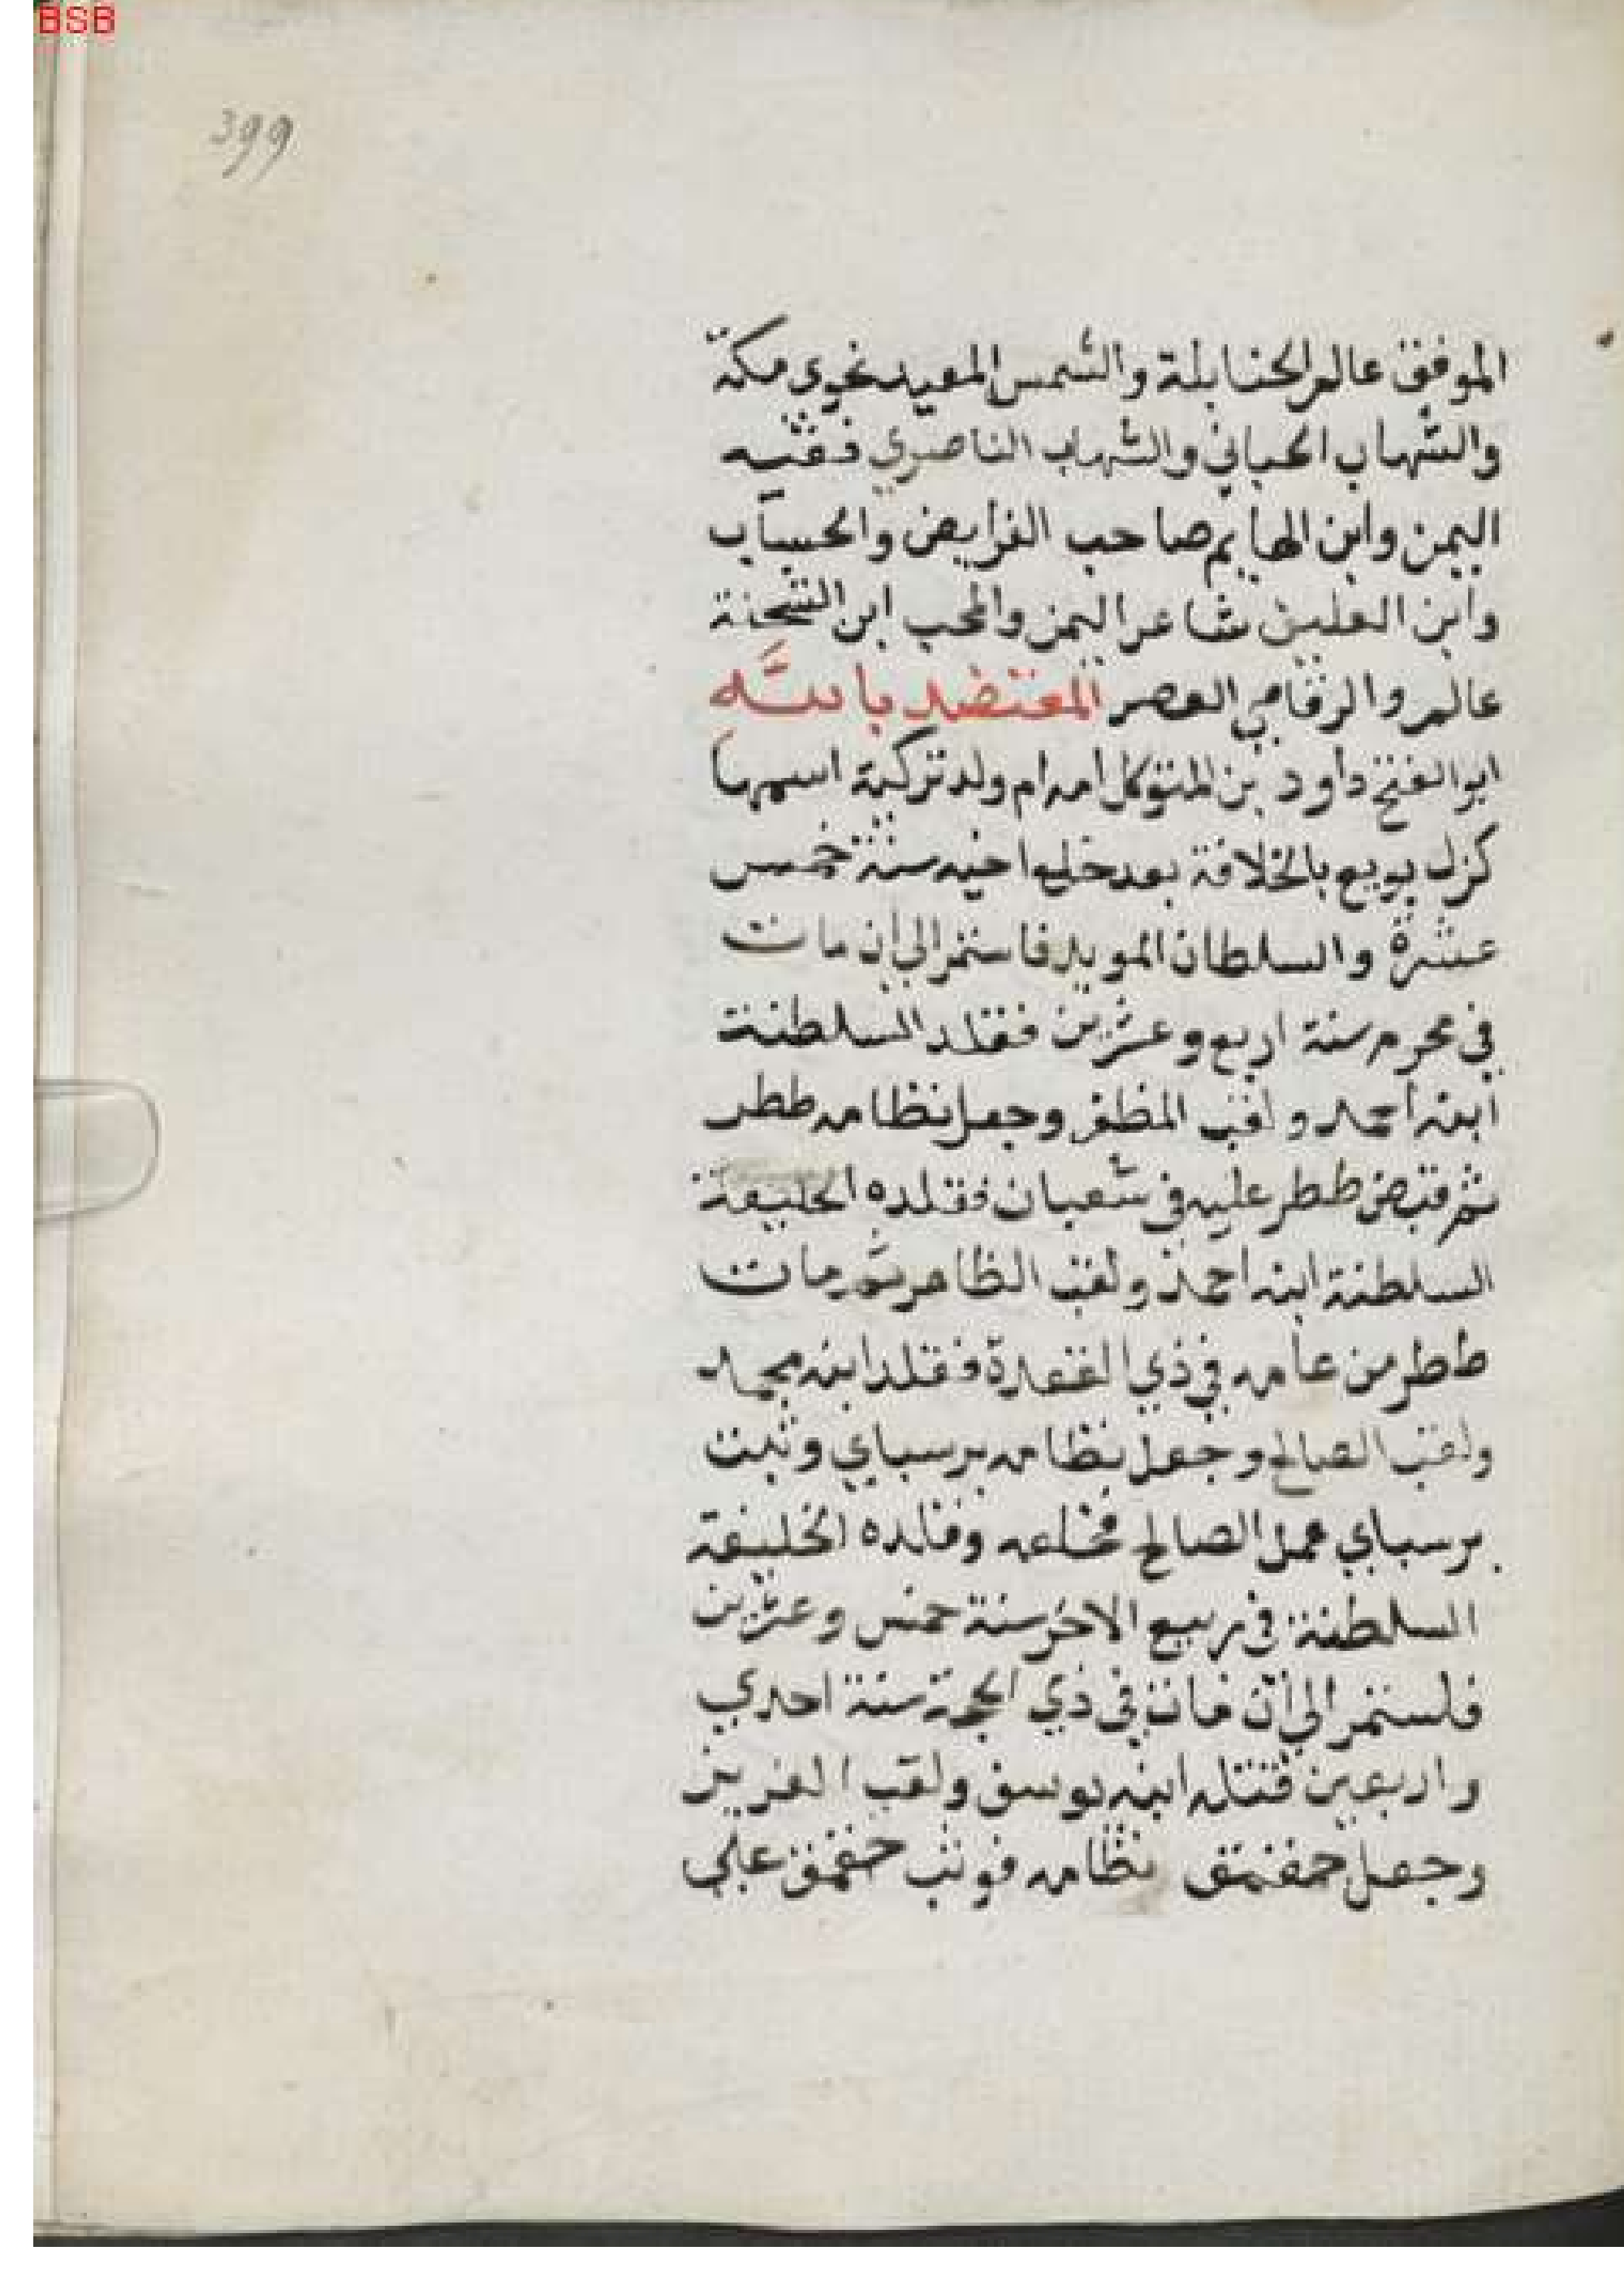 BSB
399
الموفق عالم الحنابلة والشمس المعيد نحوي مكة
والشهاب الحباني والشهاب الناصري فقيه
اليمن وابن الهايم صاحب الفرايض والحساب
وابن العليف شاعر اليمن والمحب ابن الشحنة
عالم والرقامي العصر المعتضد بالله
ابو الفتح داود بن المتوكل امه ام ولد تركية اسمها
كزل بويع بالخلافة بعد خلع اخيه سنة خمس
عشرة والسلطان المويد فاستمر الى ان مات
في محرم سنة اربع وعشرين فقلد السلطنة
ابنه احمد ولقب المظفر وجعل نظامه ططر
ثم قبض ططر عليه في شعبان فقلده الخليفة
السلطنة ابنه احمد ولقب الظاهر ثم مات
ططر من عامه في ذي القعدة فقلد ابنه محمد
ولقب الصالح وجعل نظامه برسباي وثبت
برسباي عمل الصالح فخلعه وقلده الخليفة
السلطنة في ربيع الاخر سنة خمس وعشرين
فاستمر الى ان مات في ذي الحجة سنة احدي
واربعين فقتله ابنه يوسف ولقب العزيز
وجعل جمقمق نظامه فوثب جقمق علي